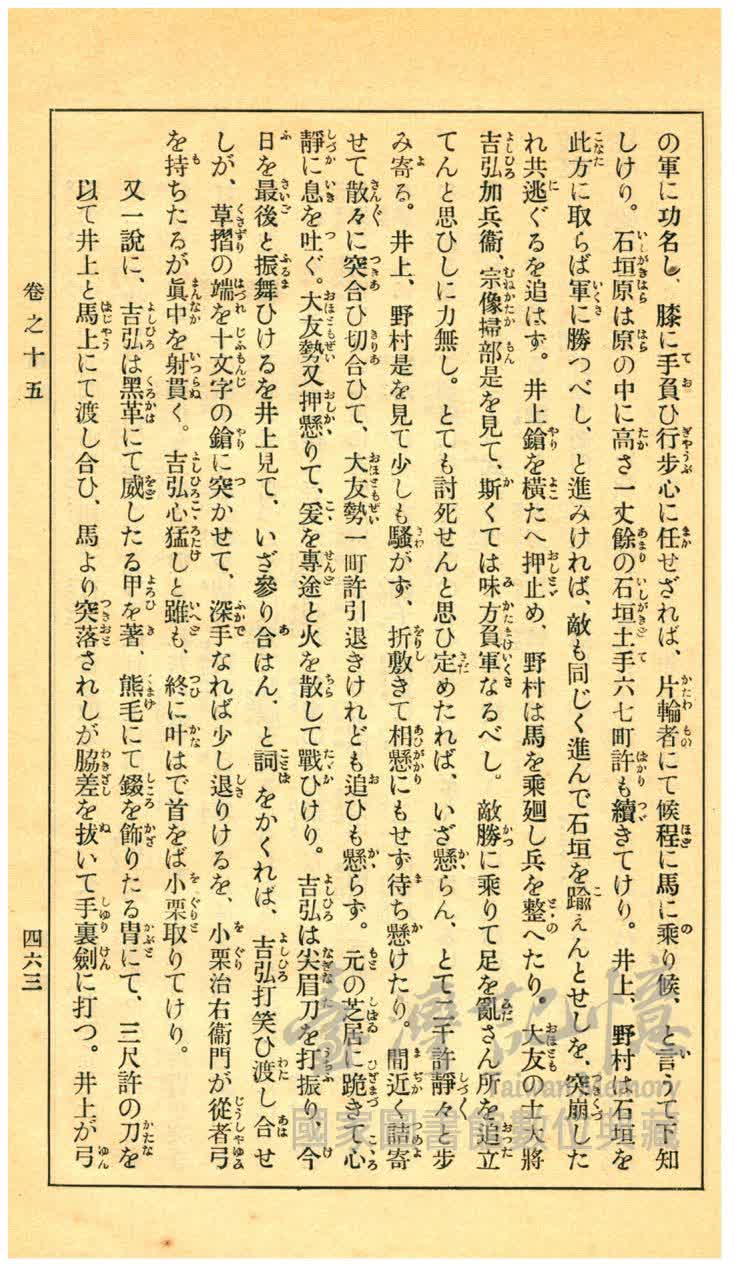 の軍に功名し、膝に手負ひ行步心に任せざれば、片輪者にて候程に馬に乘り候、と言うて下知
しけり。石垣原は原の中に高さ一丈餘の石垣土手六七町許も續きてけり。井上、野村は石垣を
此方に取らば軍に勝つべし、と進みければ、敵も同じく進んで石垣を踰えんとせしを、突崩した
れ共逃ぐるを追はず。井上鎗を橫たへ押止め、野村は馬を乘廻し兵を整へたり。大友の士大將
吉弘加兵衞、宗像掃部是を見て、斯くては味方負軍なるべし。敵勝に乘りて足を亂さん所を追立
てんと思ひしに力無し。とても討死せんと思ひ定めたれば、いざ懸らん、とて二千許靜々と步
み寄る。井上、野村是を見て少しも騷がず、折敷きて相懸にもせず待ち懸けたり。間近く詰寄
せて散々に突合ひ切合ひて、大友勢一町許引退きけれども追ひも懸らず。元の芝居に跪きて心
靜に息を吐ぐ。大友勢又押懸りて、爰を專途と火を散して戰ひけり。吉弘は尖眉刀を打振り、今
日を最後と振舞ひけるを井上見て、いざ參り合はん、と詞をかくれば、吉弘打笑ひ渡し合せ
しが、草摺の端を十文字の鎗に突かせて、深手なれば少し退りけるを、小栗治右衞門が從者弓
を持ちたるが眞中を射貫く。吉弘心猛しと雖も、終に叶はで首をば小栗取りてけり。
又一說に、吉弘は黑革にて威したる甲を著、熊毛にて錣を飾りたる冑にて、三尺許の刀を
以て井上と馬上にて渡し合ひ、馬より突落されしが脇差を拔いて手裏劍に打つ。井上が弓
卷之十五
四六三
臺灣記憶
Taiwan Memory
國家圖書館數位典藏